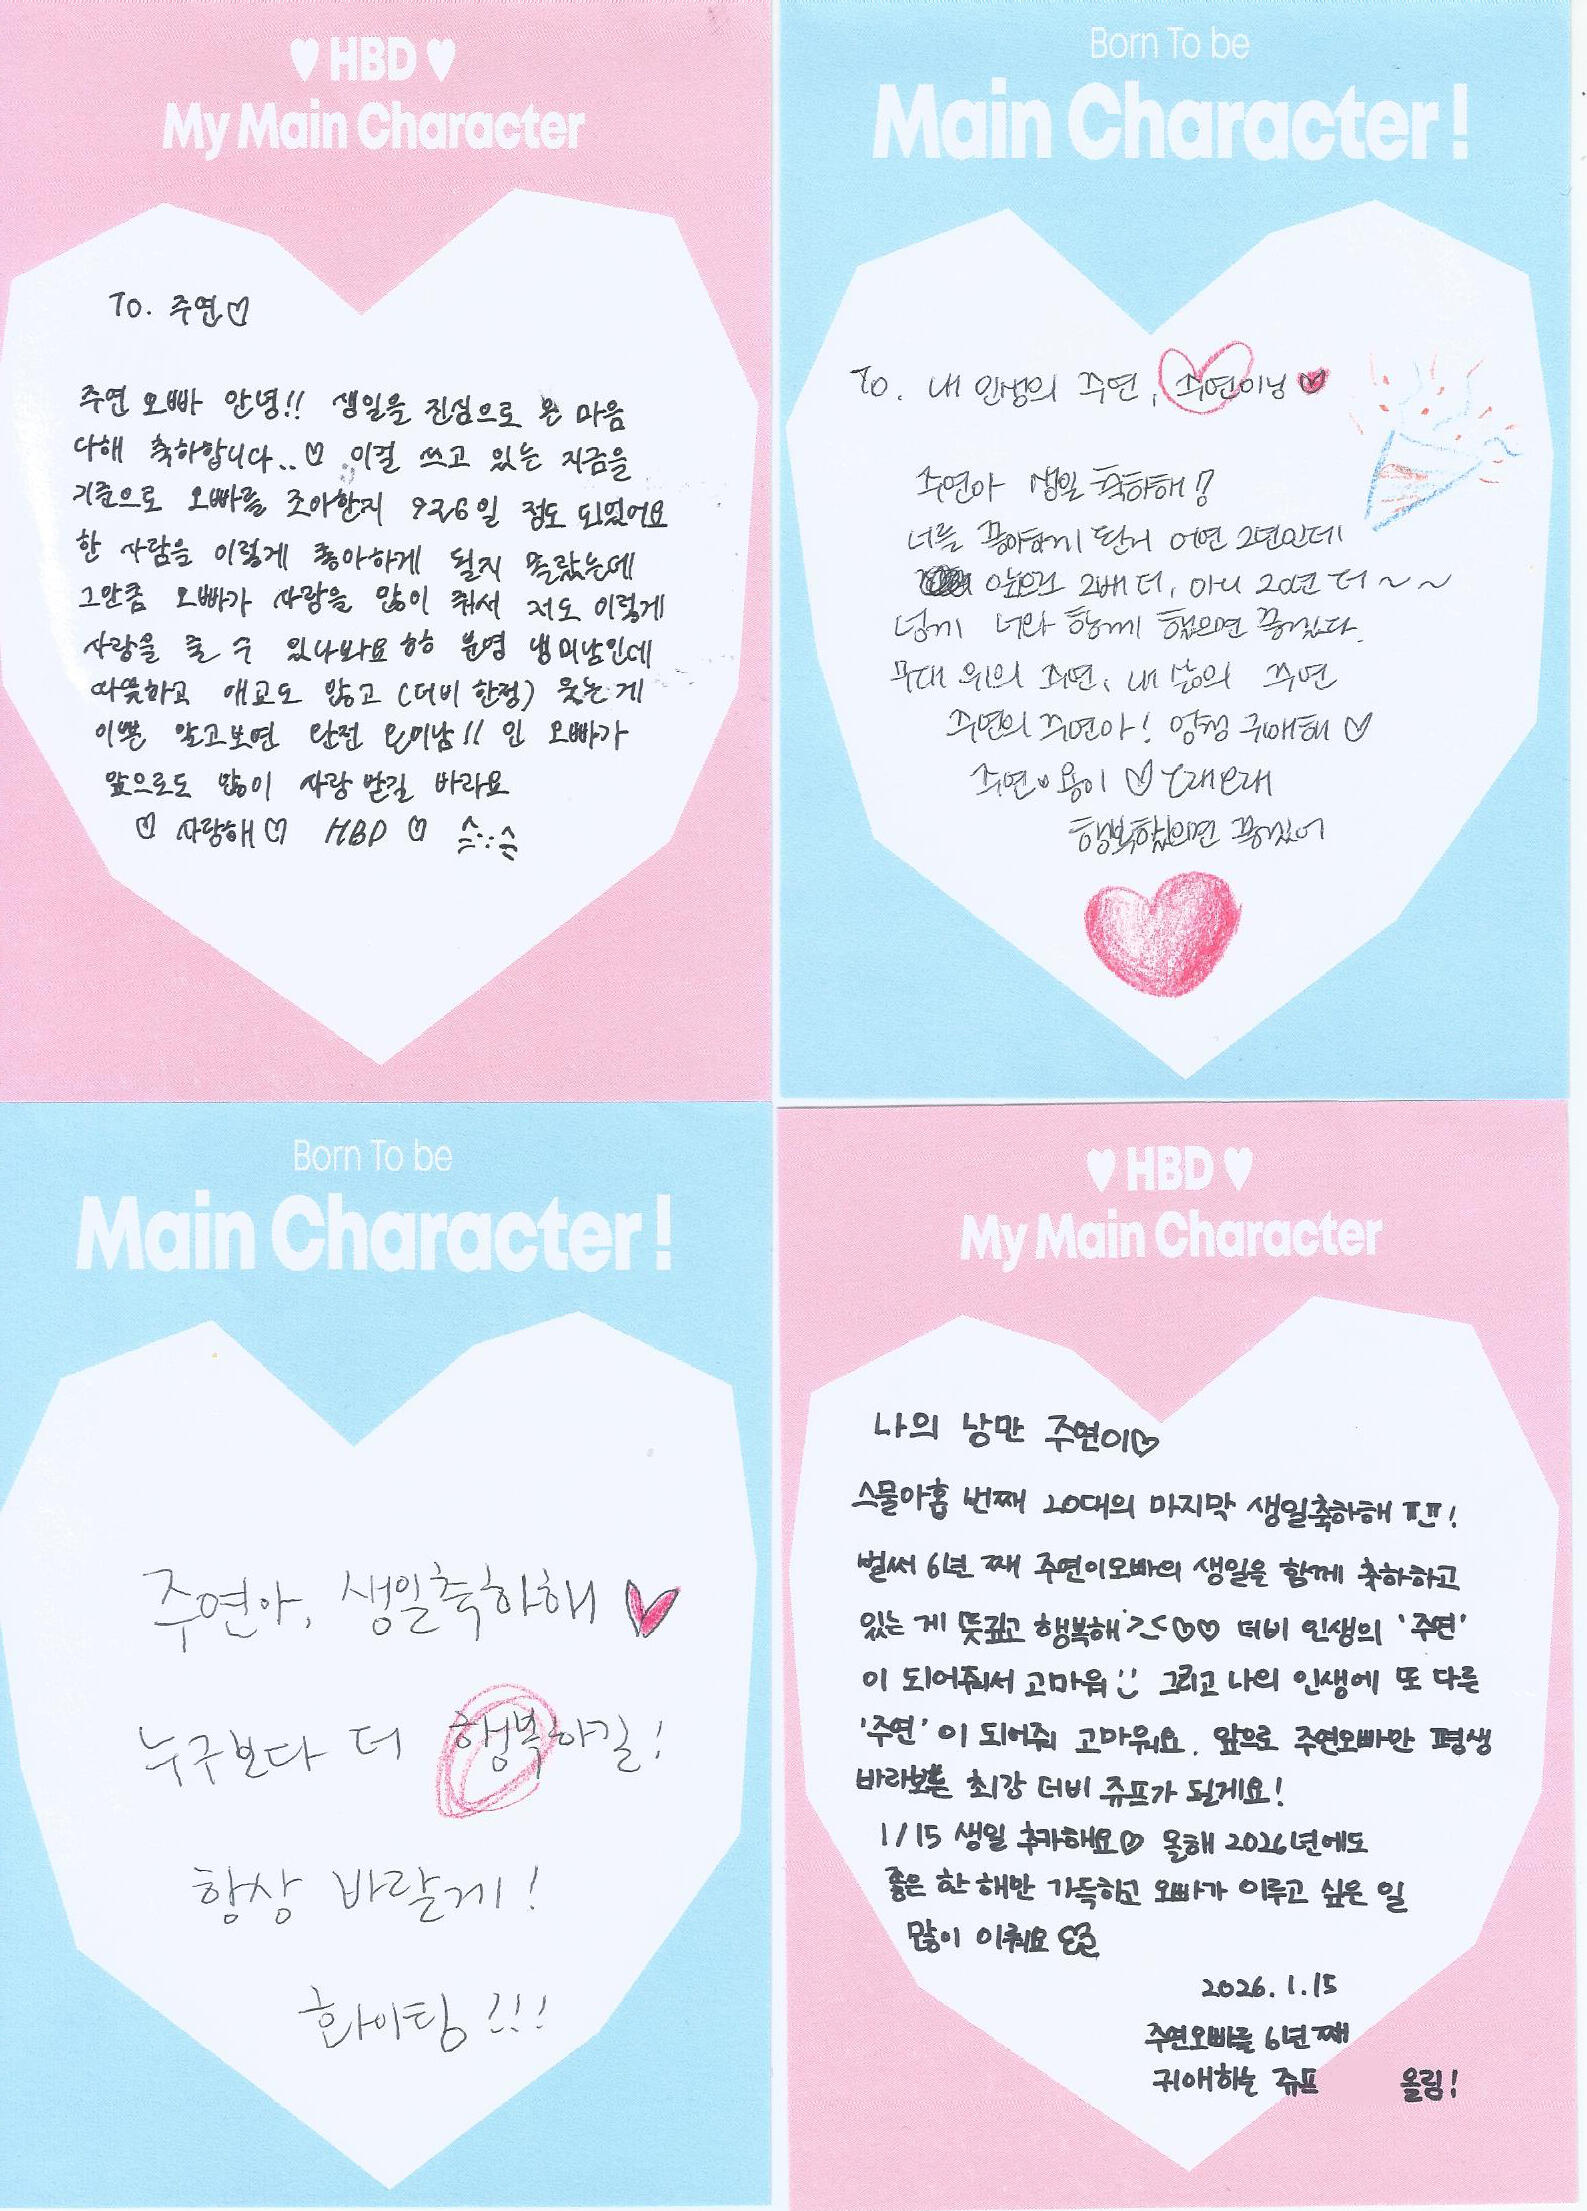 ♥ HBD ♥
My Main Character
To. 주연♡
주연 오빠 안녕!! 생일을 진심으로 온 마음
다해 축하합니다..♡ 이걸 쓰고 있는 지금을
기준으로 오빠를 조아한지 926일 정도 되었어요
한 사람을 이렇게 좋아하게 될지 몰랐는데
그만큼 오빠가 사랑을 많이 줘서 저도 이렇게
사랑을 줄 수 있나봐요 ㅎㅎ 분명 냉미남인데
따뜻하고 애교도 많고 (더비 한정) 웃는 게
이쁜 알고보면 완전 온미남!! 인 오빠가
앞으로도 많이 사랑 받길 바라요
♡ 사랑해♡ HBD ♡
Born To be
Main Character!
To. 내 인생의 주연, 주연이닝♥
주연아 생일 축하해!
너를 좋아하게 된지 어연 2년인데
앞으로 2배 더, 아니 20년 더~~
넘게 너와 함께 했으면 좋겠다.
무대 위의 주연, 내 삶의 주연
주연의 주연아! 왕창 귀애해♡
주연이용이♡ 오래오래
행복했으면 좋겠어
Born To be
Main Character!
주연아, 생일축하해♥
누구보다 더 행복하길!
항상 바랄게!
화이팅!!!
♥ HBD ♥
My Main Character
나의 낭만 주연이♡
스물아홉 번째 20대의 마지막 생일축하해 ㅠㅠ!
벌써 6년 째 주연이오빠의 생일을 함께 축하하고
있는 게 뜻깊고 행복해 >.<♡♡ 더비 인생의 '주연'
이 되어줘서 고마워 :) 그리고 나의 인생에 또 다른
'주연' 이 되어줘 고마워요. 앞으로 주연오빠만 평생
바라보는 최강 더비 쥬프가 될게요!
1/15 생일 추카해요♡ 올해 2026년에도
좋은 한 해만 가득하고 오빠가 이루고 싶은 일
많이 이뤄요
2026.1.15
주연오빠를 6년 째
귀애하는 쥬프 올림!